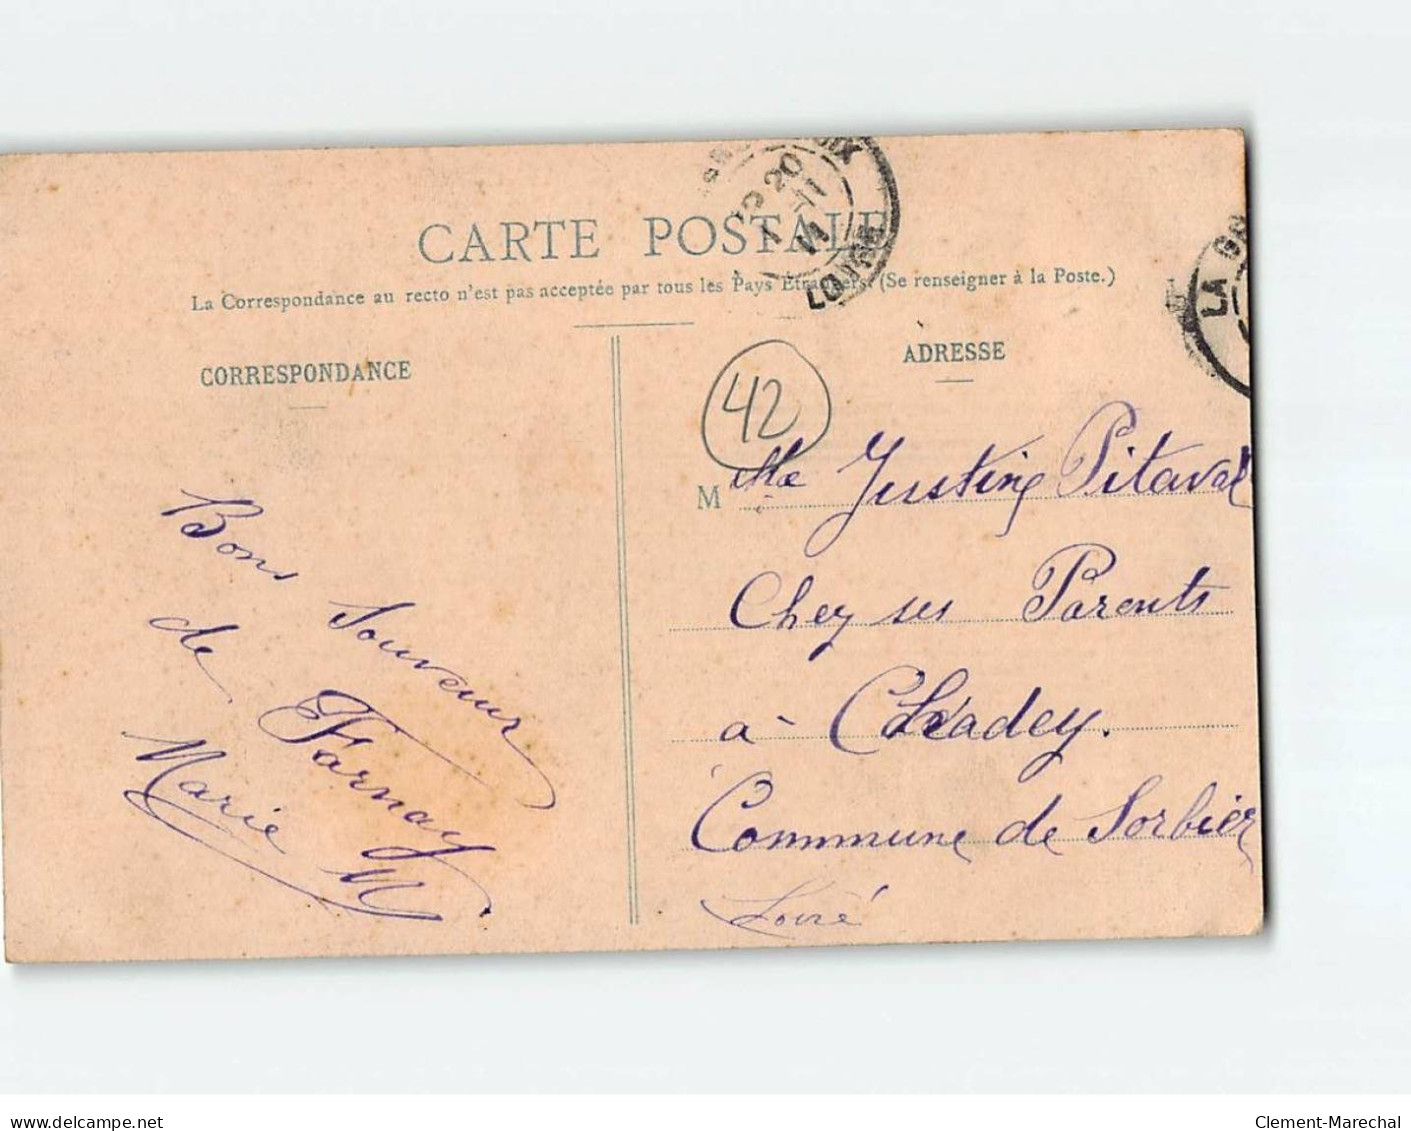 CARTE POSTALE
La Correspondance au recto n'est pas acceptée par tous les Pays Étrangers. (Se renseigner à la Poste.)
CORRESPONDANCE
Bons Souvenirs
de Farnay
Marie M
ADRESSE
42
M elle Justine Pitaval
Chez ses Parents
à Chadey.
Commune de Sorbier
Loire
20
11
LOIRE
LA GR
delcampe.net
Clement-Marechal